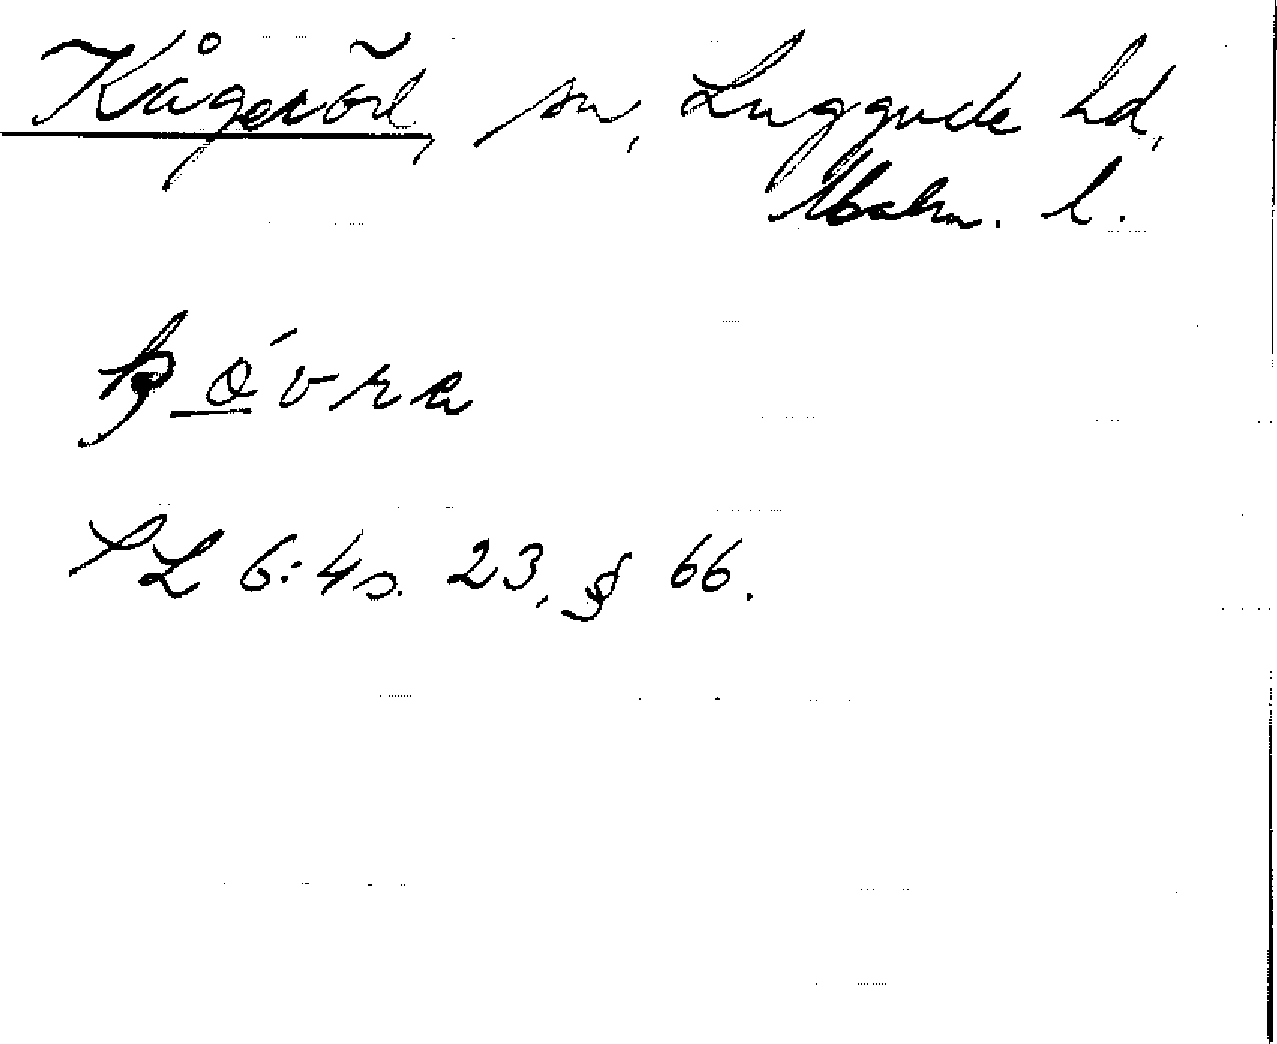 Kågeröd, sn, Luggude hd,
Malm. l.
þ ó̱vra
SL 6:4 s. 23, § 66.